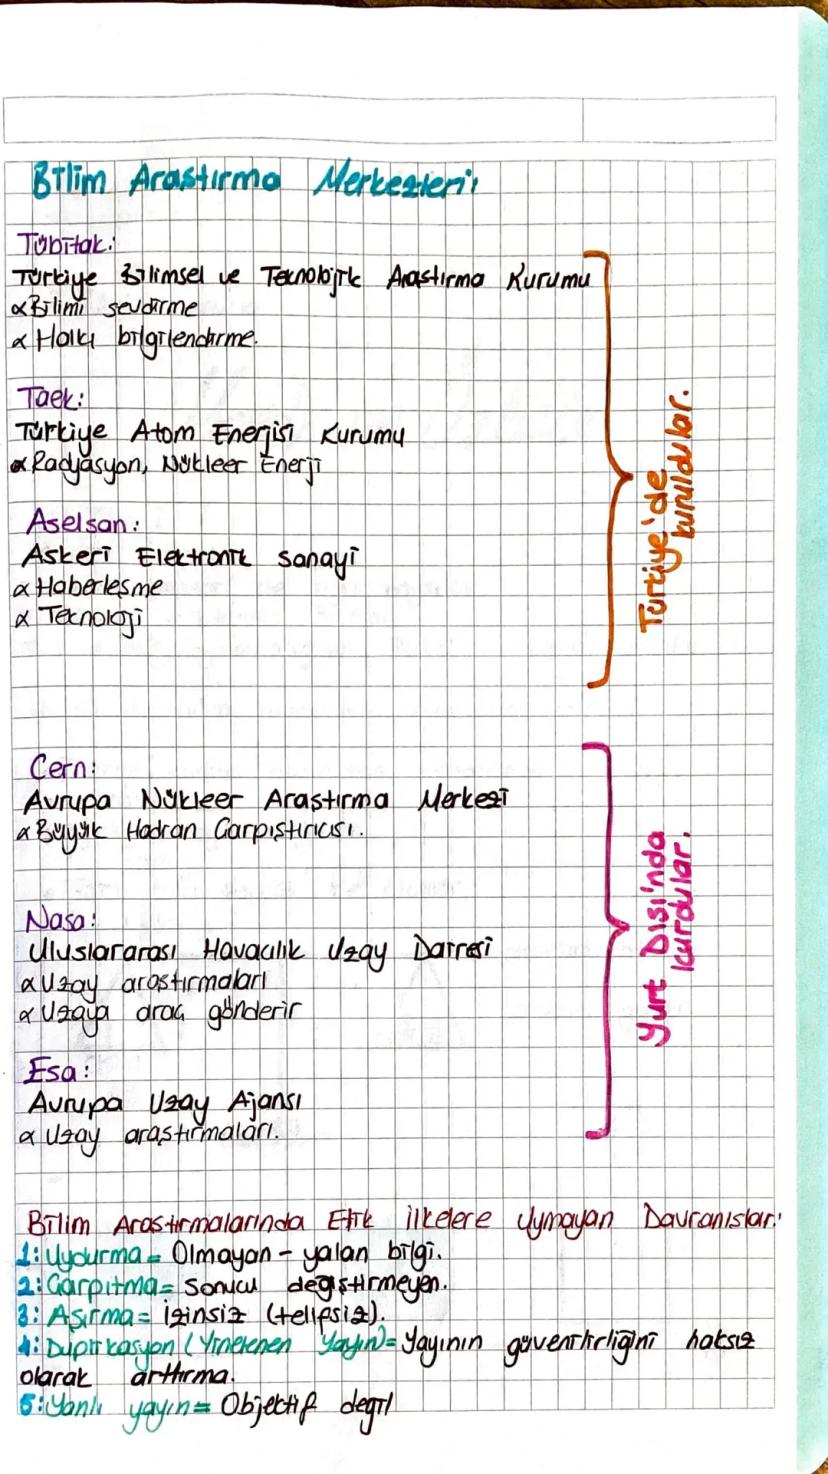 Bilim Araştırma Merkezleri:
Tübitak:
Türkiye Bilimsel ve Teknolojik Araştırma Kurumu
α Bilimi sevdirme
α Halkı bilgilendirme.
Taek:
Türkiye Atom Enerjisi Kurumu
α Radyasyon, Nükleer Enerji
Aselsan:
Askeri Elektronik Sanayi
α Haberleşme
α Teknoloji
Türkiye'de
kuruldular.
Cern:
Avrupa Nükleer Araştırma Merkezi
α Büyük Hadran Çarpıştırıcısı.
Nasa:
Uluslararası Havacılık Uzay Dairesi
α Uzay araştırmaları
α Uzaya araç gönderir
Esa:
Avrupa Uzay Ajansı
α Uzay araştırmaları.
Yurt Dışı'nda
kurdular.
Bilim Araştırmalarında Etik İlkelere Uymayan Davranışlar:
1: Uydurma = Olmayan - yalan bilgi.
2: Çarpıtma = Sonucu değiştirmeyen.
3: Aşırma = İzinsiz (telifsiz).
4: Duplikasyon (Yinelenen Yayın) = Yayının güvenilirliğini haksız
olarak arttırma.
5: Yanlı yayın = Objektif değil